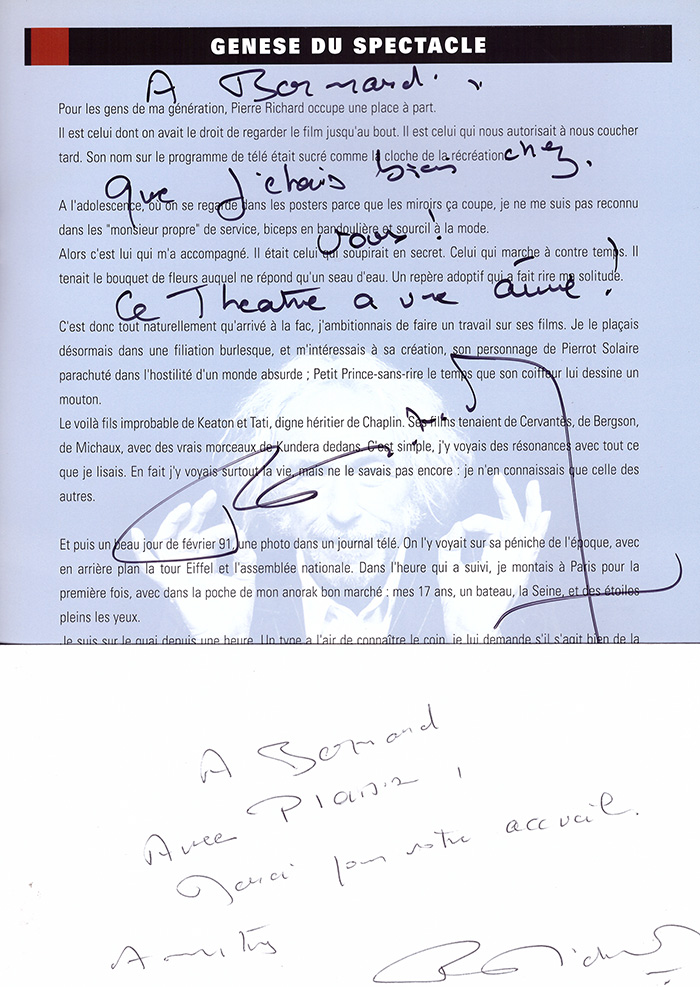 GENESE DU SPECTACLE
A Bernard.
Pour les gens de ma génération, Pierre Richard occupe une place à part.
Il est celui dont on avait le droit de regarder le film jusqu'au bout. Il est celui qui nous autorisait à nous coucher
tard. Son nom sur le programme de télé était sucré comme la cloche de la récréation.
que j'étais bien chez
A l'adolescence, où on se regarde dans les posters parce que les miroirs ça coupe, je ne me suis pas reconnu
dans les "monsieur propre" de service, biceps en bandoulière et sourcil à la mode.
vous !
Alors c'est lui qui m'a accompagné. Il était celui qui soupirait en secret. Celui qui marche à contre temps. Il
tenait le bouquet de fleurs auquel ne répond qu'un seau d'eau. Un repère adoptif qui a fait rire ma solitude.
Ce Theatre a une âme !
C'est donc tout naturellement qu'arrivé à la fac, j'ambitionnais de faire un travail sur ses films. Je le plaçais
désormais dans une filiation burlesque, et m'intéressais à sa création, son personnage de Pierrot Solaire
parachuté dans l'hostilité d'un monde absurde ; Petit Prince-sans-rire le temps que son coiffeur lui dessine un
mouton.
Le voilà fils improbable de Keaton et Tati, digne héritier de Chaplin. Ses films tenaient de Cervantès, de Bergson,
de Michaux, avec des vrais morceaux de Kundera dedans. C'est simple, j'y voyais des résonances avec tout ce
que je lisais. En fait j'y voyais surtout la vie, mais ne le savais pas encore : je n'en connaissais que celle des
autres.
Et puis un beau jour de février 91, une photo dans un journal télé. On l'y voyait sur sa péniche de l'époque, avec
en arrière plan la tour Eiffel et l'assemblée nationale. Dans l'heure qui a suivi, je montais à Paris pour la
première fois, avec dans la poche de mon anorak bon marché : mes 17 ans, un bateau, la Seine, et des étoiles
pleins les yeux.
Je suis sur le quai depuis une heure. Un type a l'air de connaître le coin, je lui demande s'il s'agit bien de la
A Bernard
Avec Plaisir,
Merci pour votre accueil.
Amitiés